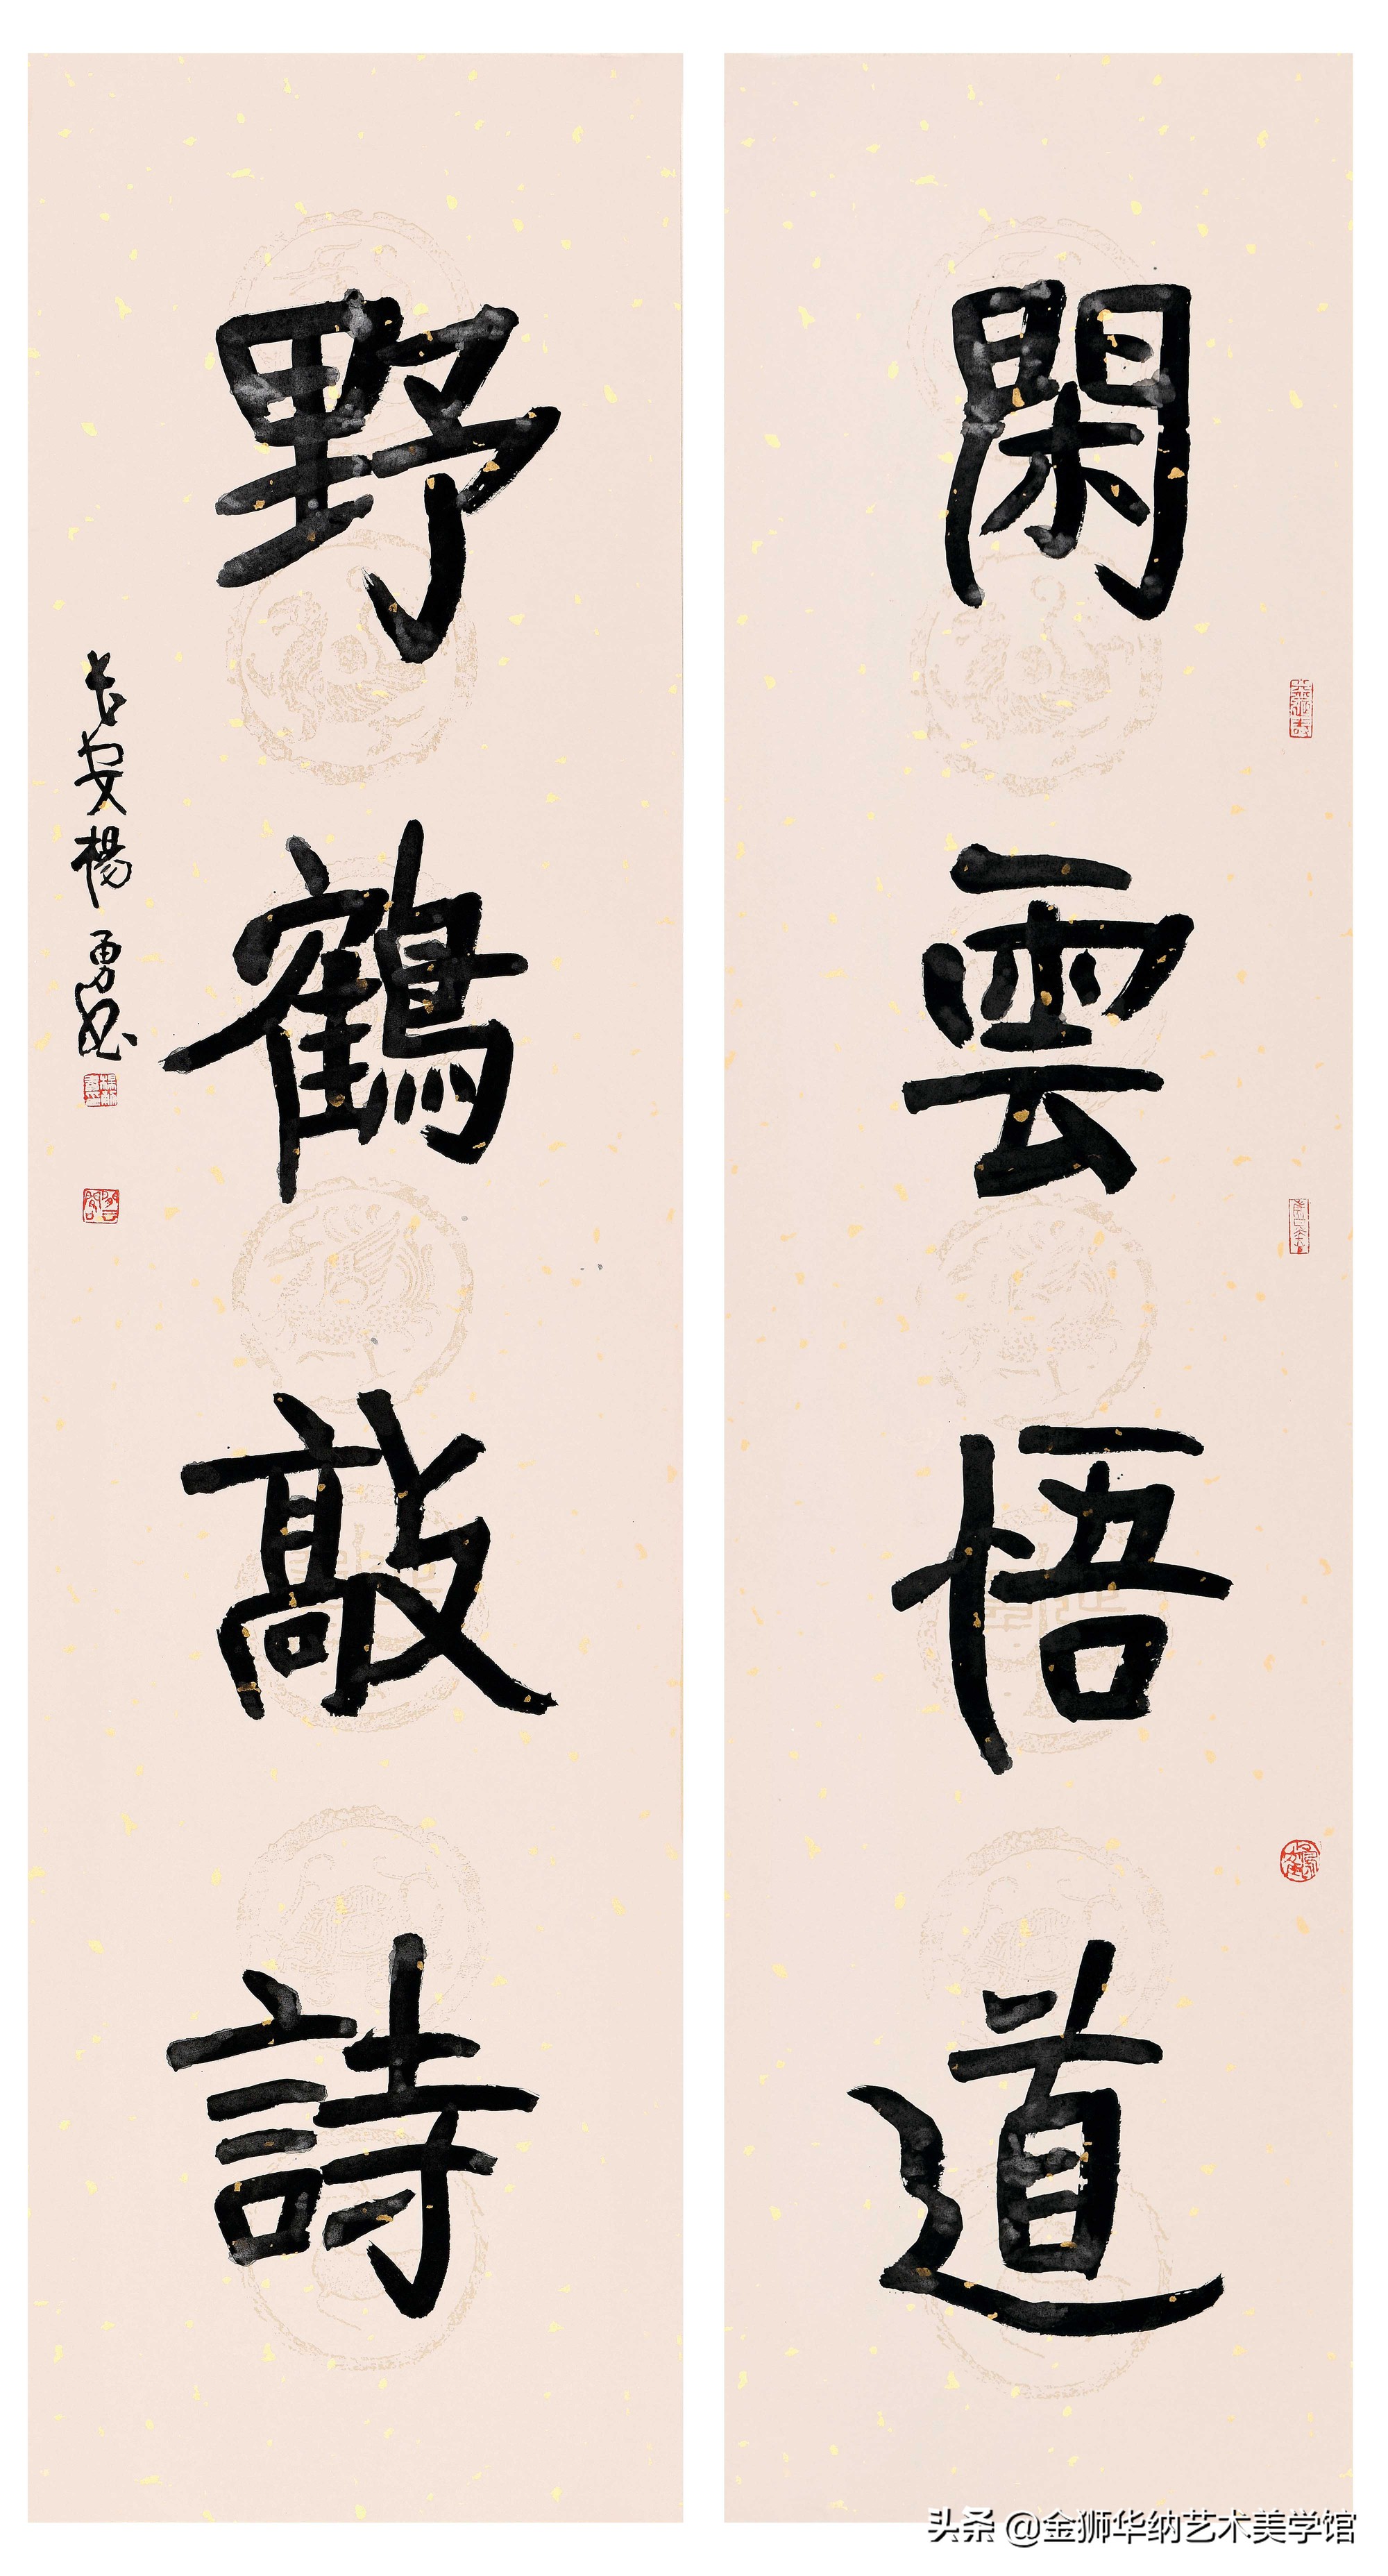 閑雲悟道
野鶴敲詩
长安楊勇書
头条 @金狮华纳艺术美学馆